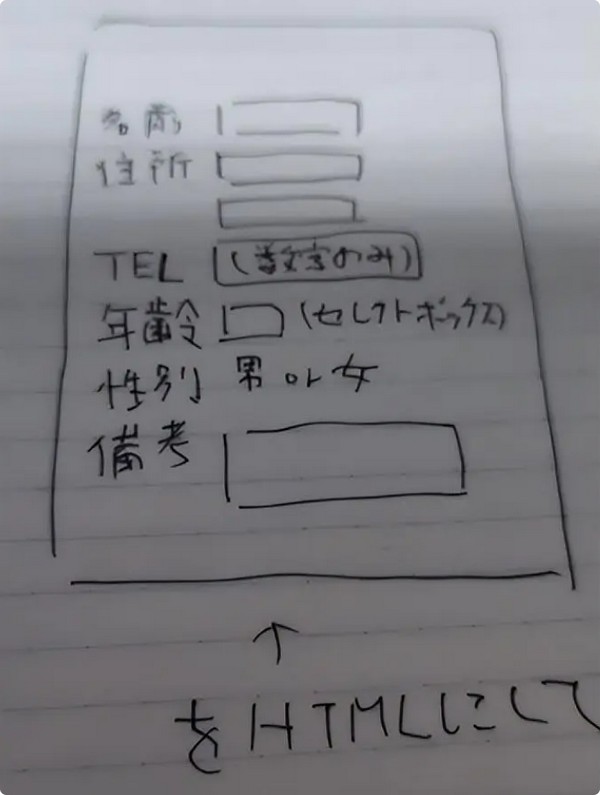 名前
住所
TEL (数字のみ)
年齢 (セレクトボックス)
性別 男 or 女
備考
↑
をHTMLにして